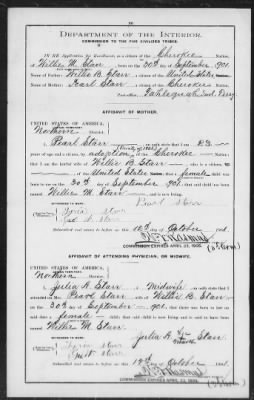 DEPARTMENT OF THE INTERIOR.
COMMISSION TO THE FIVE CIVILIZED TRIBES.
IN RE Application for Enrollment, as a citizen of the Cherokee Nation,
of Willie M. Starr, born on the 30th day of September 1901.
Name of Father: Willie B. Starr a citizen of the United States
Name of Mother: Pearl Starr a citizen of the Cherokee Nation.
Post-office Tahlequah, Ind. Terry
AFFIDAVIT OF MOTHER.
UNITED STATES OF AMERICA,
Northern District.
I, Pearl Starr, on oath state that I am 23
years of age and a citizen, by adoption, of the Cherokee Nation;
that I am the lawful wife of Willie B. Starr, who is a citizen,
of the United States; that a female child
was born to me on 30th day of September 1901, that said child has been
named Willie M. Starr
Pearl Starr
WITNESSES TO MARK:
day of October 1901.
COMMISSION EXPIRES APRIL 22, 1905.
AFFIDAVIT OF ATTENDING PHYSICIAN, OR MIDWIFE.
UNITED STATES OF AMERICA,
Northern District.
I, Julia A. Starr, a Midwife, on oath state that I
attended on Mrs. Pearl Starr, wife of Willie B. Starr
on the 30th day of September, 1901, that there was born to her on
said date a female child; that said child is now living and is said to have been
named Willie M. Starr
Julia A. Starr
WITNESSES TO MARK:
day of October 1901.
COMMISSION EXPIRES APRIL 22, 1905.